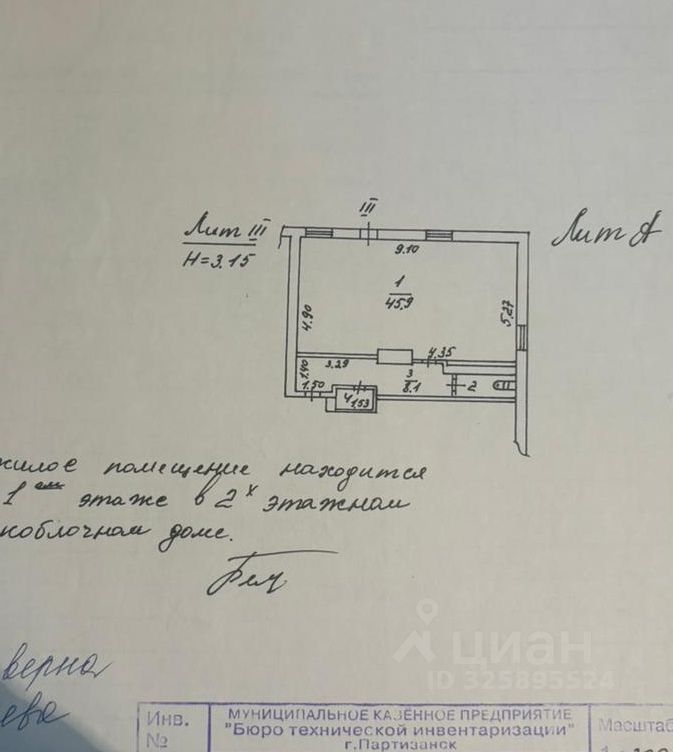 III
Лит III
Н=3.15
Лит А
9.10
1
45,9
4.90
5.27
3.29
4.35
1.40
3
8.1
2
1.50
4
1,53
жилое помещение находится
1 ом этаже в 2х этажном
коблочном доме.
циан
ID 325895524
верна
ева
Инв.
№
МУНИЦИПАЛЬНОЕ КАЗЁННОЕ ПРЕДПРИЯТИЕ
"Бюро технической инвентаризации"
г.Партизанск
Масштаб